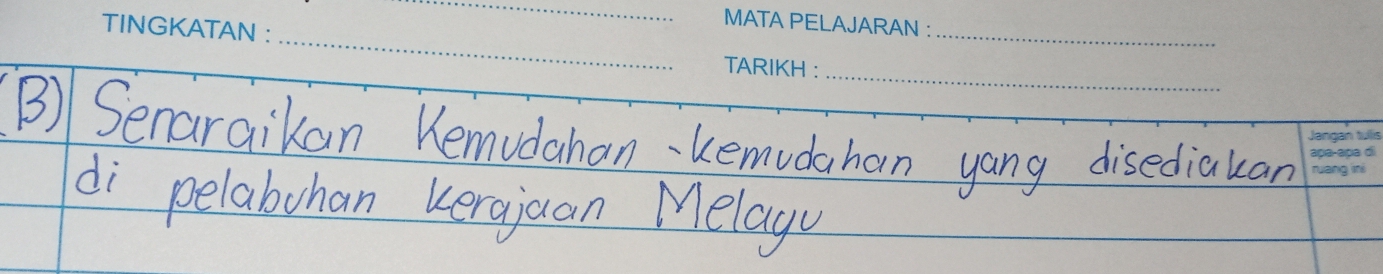 TINGKATAN :
MATA PELAJARAN :
TARIKH :
(B) Senaraikan Kemudahan-kemudahan yang disediakan
di pelabuhan kerajaan Melayu
Jangan tulis
apa-apa di
ruang ini